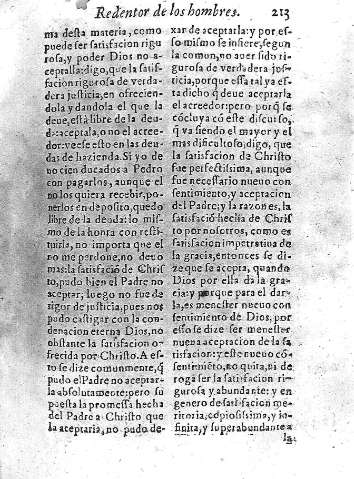 Redentor de los hombres. 213
ma desta materia, como
puede ser satisfacion rigu
rosa, y poder Dios no a-
ceptalla: digo, que la satis-
facion rigurosa de verda-
dera justicia, en ofrecien-
dola y dandola el que la
deue, està libre de la deu-
da: acéptala, o no el acree-
dor: veese esto en las deu-
das de hazienda. Si yo de
uo cien ducados a Pedro
con pagarlos, aunque el
no los quiera recebir, po-
nerlos en deposito, quedo
libre de la deoda: lo mis-
mo de la honra con resti-
tuirla, no importa que el
no me perdone, no deuo
mas: la satisfació de Chris
to, pudo bien el Padre no
aceptar, luego no fue de
rigor de justicia, pues nos
pudo castigar con la con-
denacion eterna Dios, no
obstante la satisfacion o-
frecida por Christo. A es-
to se dize comunmente, q̃
pudo el Padre no aceptar-
la absolutamente: pero su
puesta la promessa hecha
del Padre a Christo que
la aceptaria, no pudo de-
xar de aceptarla: y por es-
so mismo se infiere, segun
la comun, no auer sido ri-
gurosa de verdadera jus-
ticia, porque essa tal ya es-
ta dicho q̃ deue aceptarla
el acreedor: pero porq̃ se
cócluya có este discurso,
q̃ va siendo el mayor y el
mas dificultoso, digo, que
la satisfacion de Christo
fue perfectissima, aunque
fue necessario nueuo con
sentimiento, y aceptacion
del Padre; y la razon es, la
satisfació hecha de Chris
to por nosotros, como es
satisfacion impetratiua de
la gracia, entonces se di-
ze que se acepta, quando
Dios por ella da la gra-
cia: y porque para el dar-
la, es menester nueuo con
sentimiento de Dios, por
esso se dize ser menester
nueua aceptacion de la sa
tisfacion: y este nueuo có-
sentimiéto, no quita, ni de
roga ser la satisfacion ri-
gurosa y abundante: y en
genero de satisfacion me-
ritoria, copiosissima, y in-
finita, y superabundante a
la